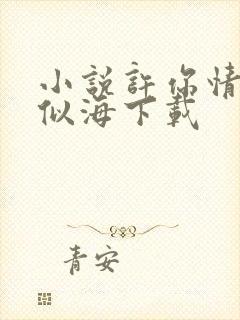 小説許你情
似海下載
青安